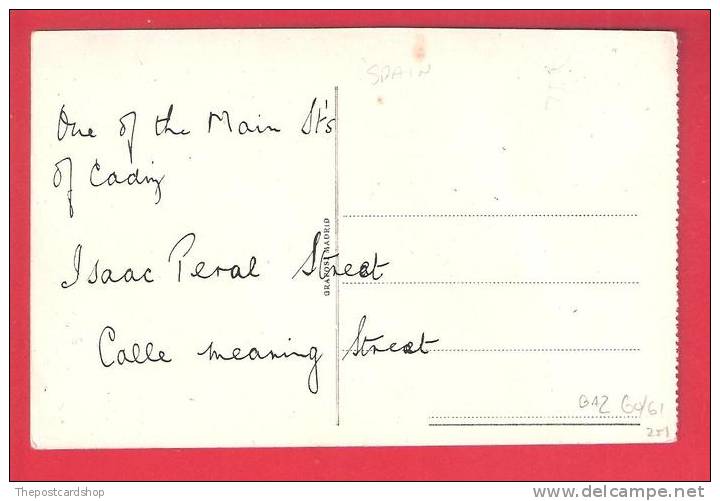 SPAIN
One of the Main St's
of Cadiz
Isaac Peral Street
Calle meaning Street
GRAFOS. MADRID
GAZ 60/61
251
Thepostcardshop
www.delcampe.net